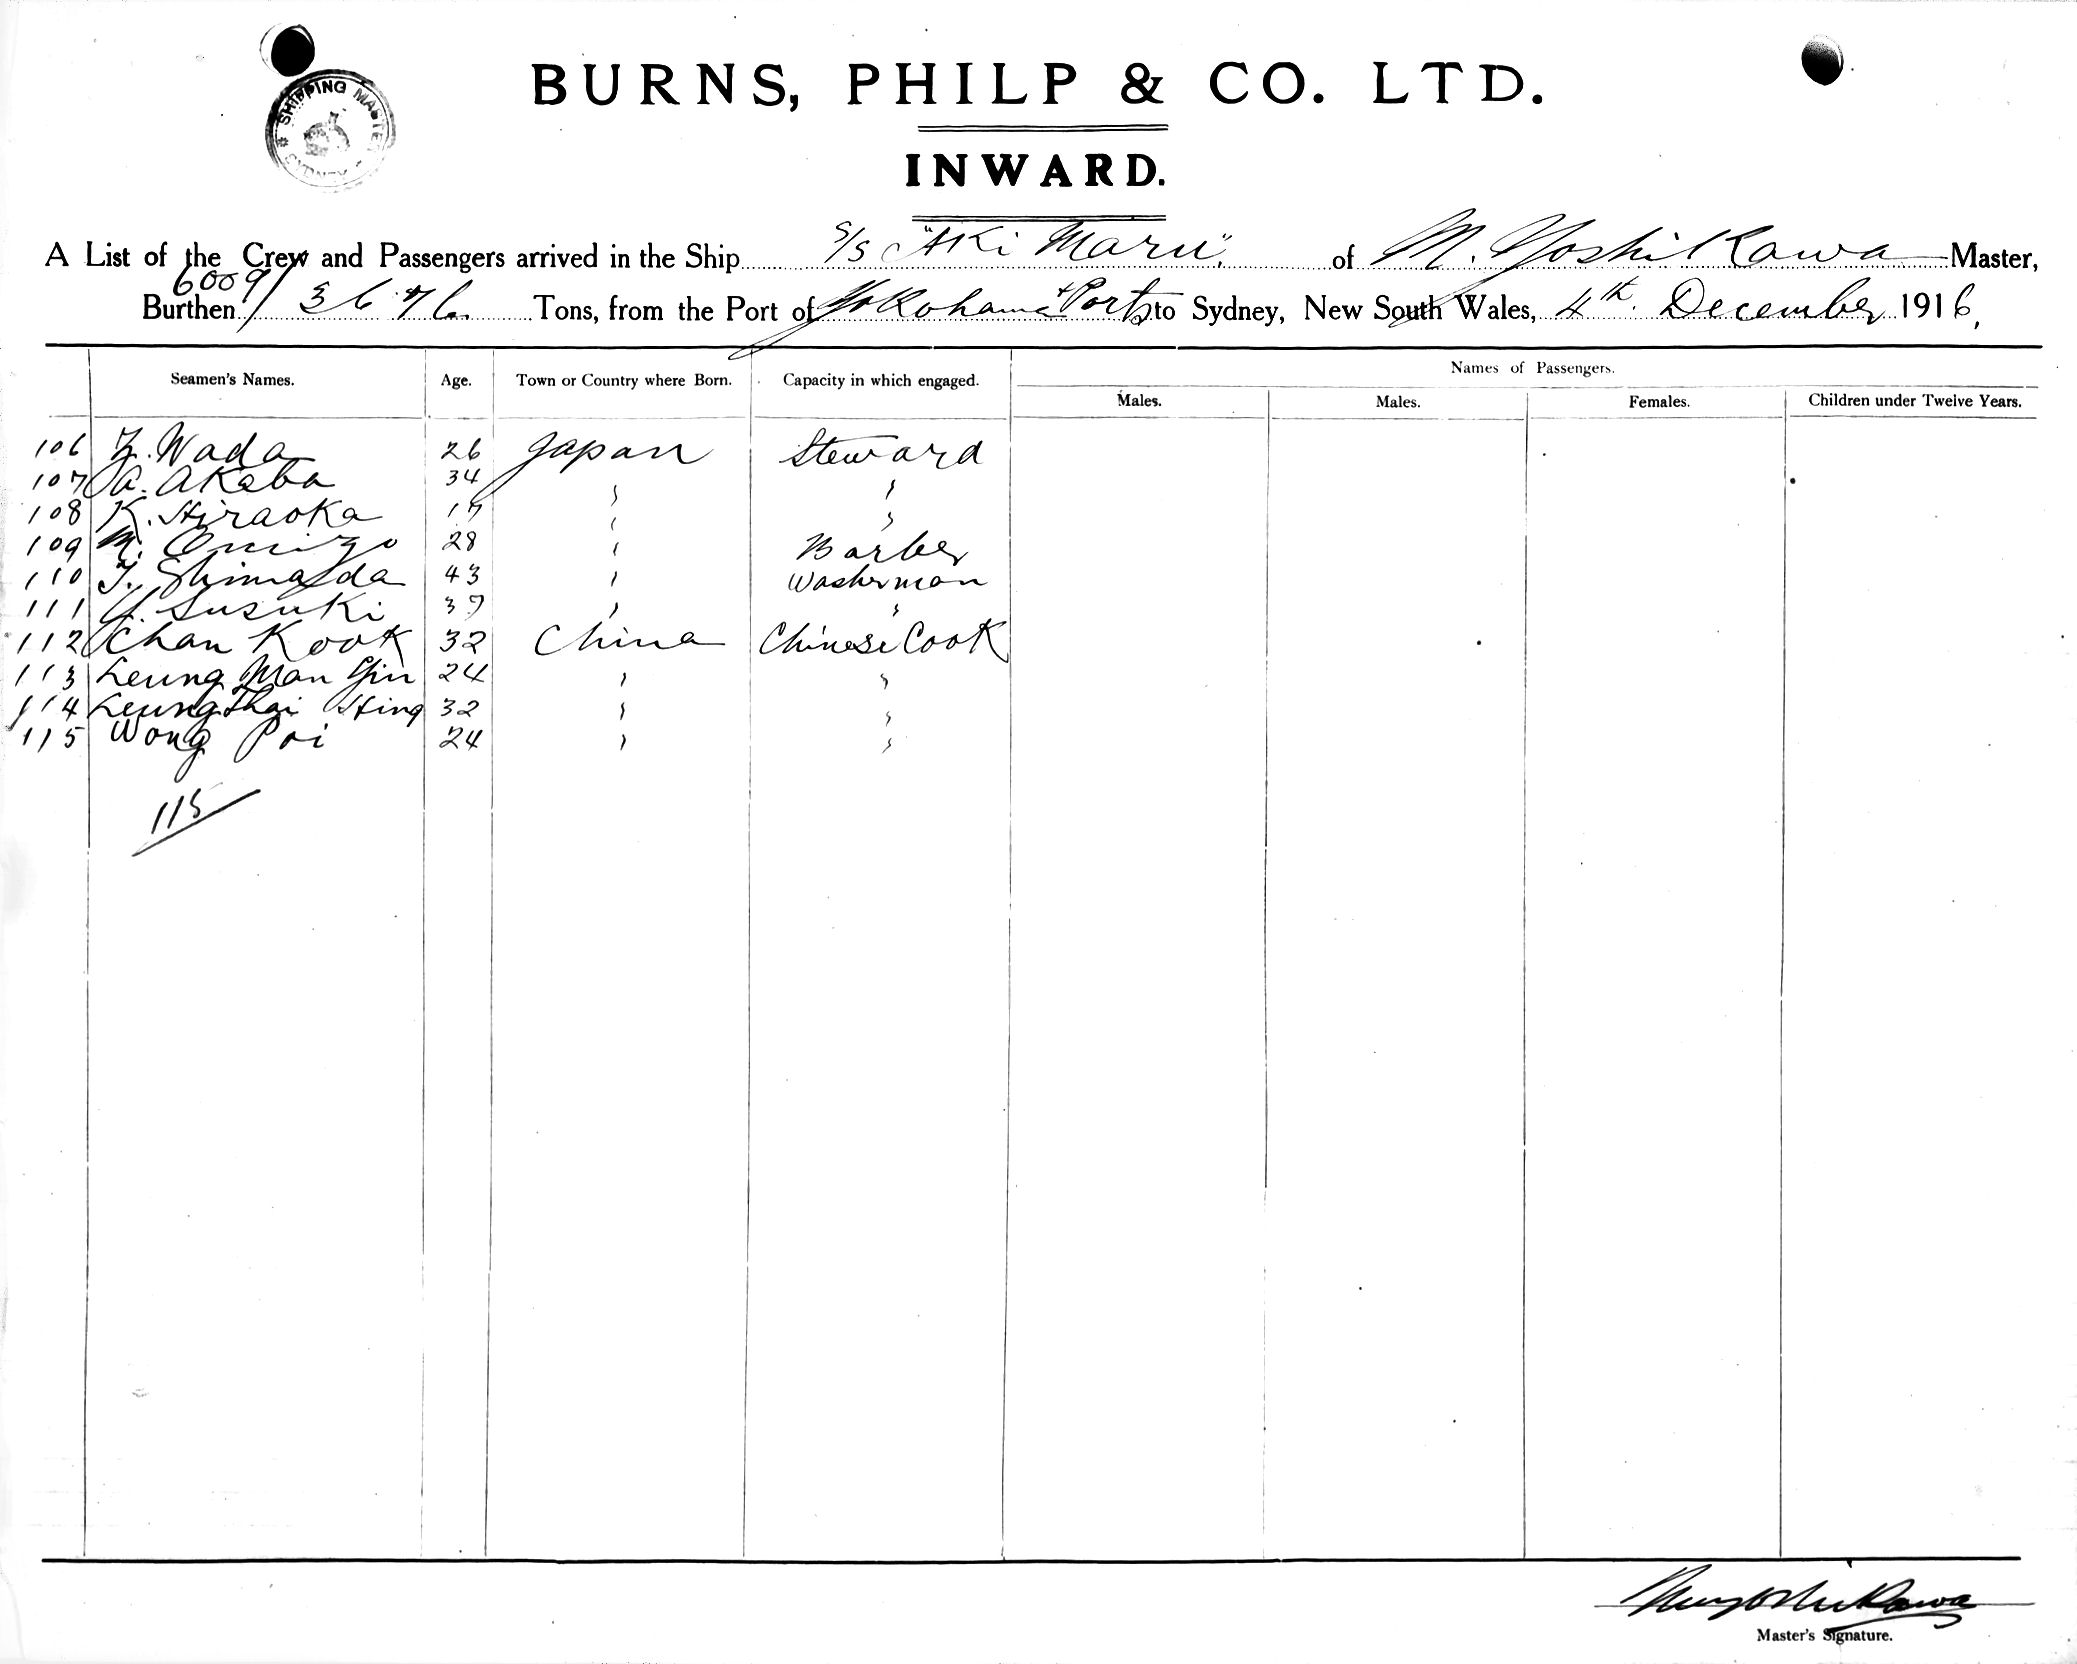 BURNS, PHILP & CO. LTD.
SHIPPING MASTER SYDNEY
INWARD.
A List of the Crew and Passengers arrived in the Ship S/S "Aki Maru". of M. Yoshikawa Master,
Burthen 6009/3676 Tons, from the Port of Yokohama + Ports to Sydney, New South Wales, 4th. December 1916,
Seamen's Names. Age. Town or Country where Born. Capacity in which engaged. Names of Passengers.
Males. Males. Females. Children under Twelve Years.
106 Z. Wada 26 Japan Steward
107 A. Akaba 34 " "
108 K. Hiraoka 17 " "
109 M. Omizo 28 " Barber
110 T. Shimada 43 " Washerman
111 Y. Susuki 37 " "
112 Chan Kook 32 China Chinese Cook
113 Leung Man Yin 24 " "
114 Leung Thai Hing 32 " "
115 Wong Poi 24 " "
115
Myoshikawa
Master's Signature.